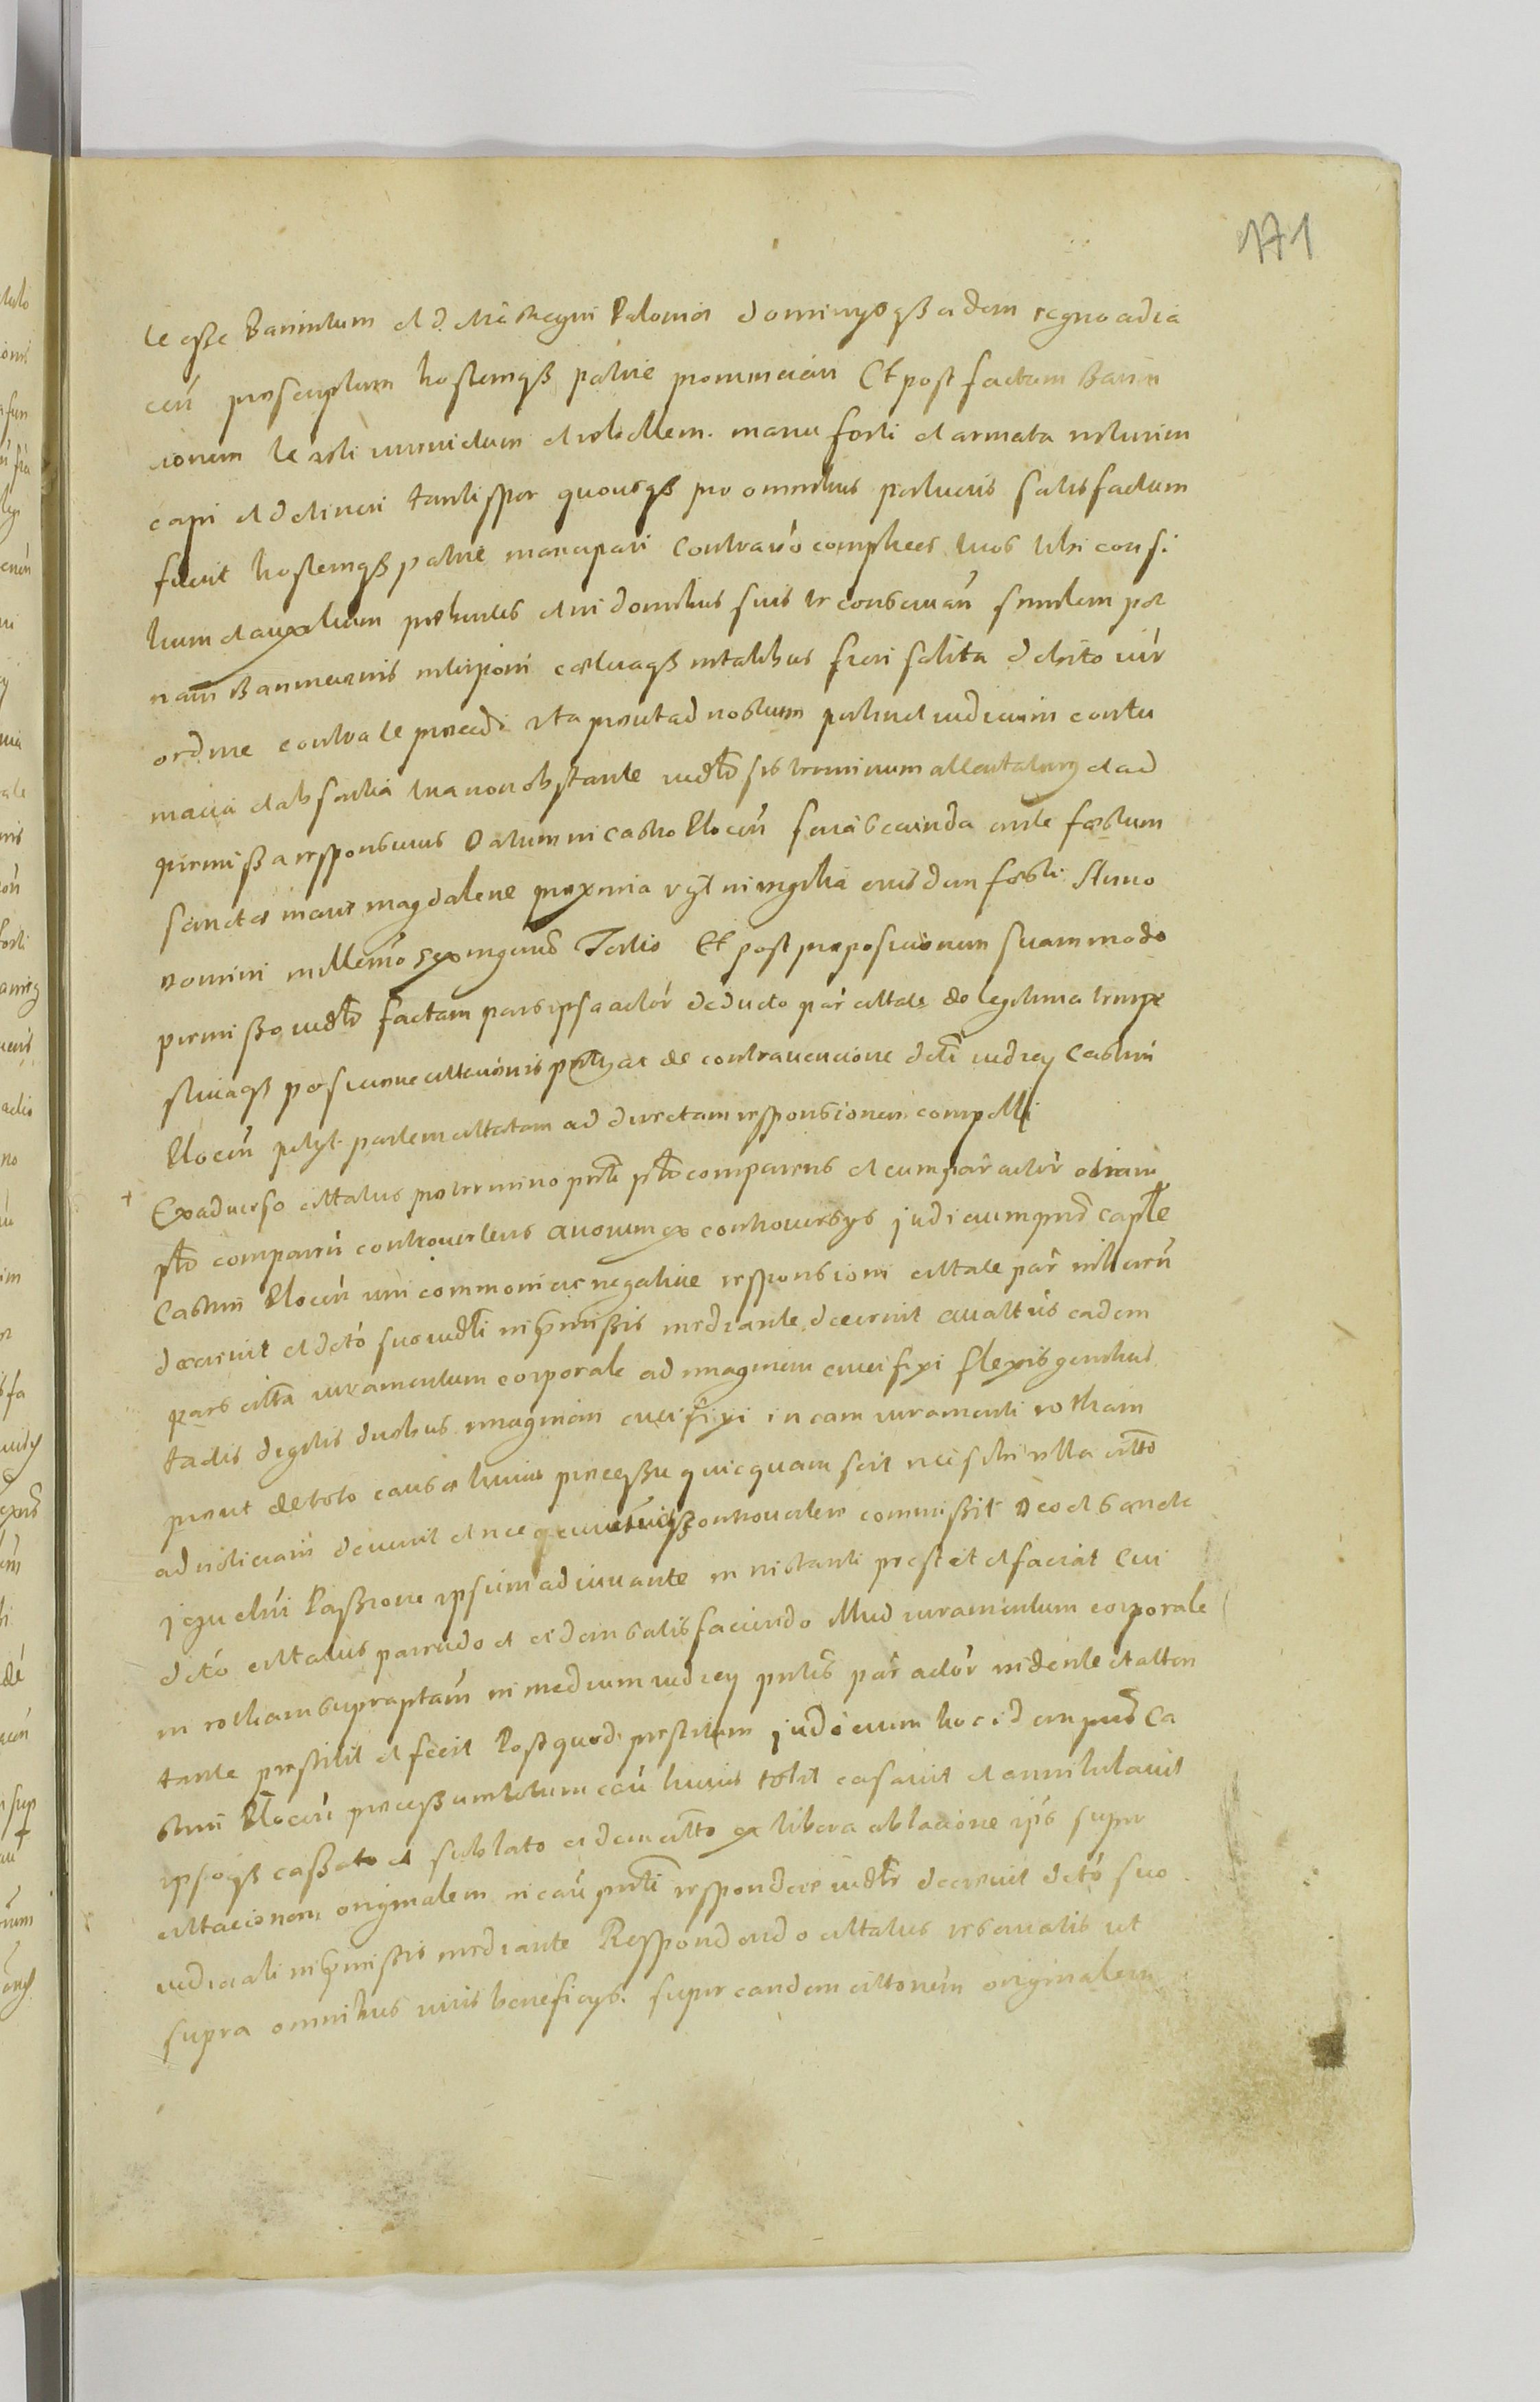 171
te esse Bannitum et d. Regni Poloniæ dominysqß eidem regno adia
cen̄ proscriptum hostemqß patriæ pronunciari Et post factam Banni
cionem te uti convictum et rebellem manu forti et armata
capi et detineri tantisper quousqß pro omnibus satisfactum
fuerit hostemqß patriæ mancipari contra v́o complices tuos tibi consi
lium et auxilium prebentes et in domibus suis te conservan̄ similem pœ
nam Bannicionis interponi cæteraqß in talibus fieri solita debito iur̄
ordine contra te procedi ita prout ad nostrum pertinet iudicium contu
macia et absentia tua non obstante iudłr sis terminum attentaturus et ad
præmissa responsurus Datum in Castro Plocen̄ feria secunda ante festum
Sanctæ mariæ magdalenæ proxima vgłt in vigilia eiusdem festi Anno
Domini millemo sexcingentmo Tertio Et post propositionem suam modo
premisso iudłr factam pars ipsa actor̄ deducto par̄ citatæ de legittima
termini citacionis ac de contravencione dcti iudicy Castrñ
Plocen̄ petyt partem citatam ad directam responsionem compelli
+ Exadverso citatus pro termino pñti psłr comparens et cum par̄ actor̄ etiam
psłr comparen̄ controvertens quorum ex controversys judicium prns capłle
Castrñ Plocen̄ uni commoniae negativæ responsioni citatæ par̄ inhæren̄
decrevit et dctó suo iudłi in p̄missis mediante decernit quatus eadem
pars citta iuramentum corporale ad imaginem crucifixi flexis genibus
tactis digitis duobus imaginem crucifixi in eam iuramenti rotham
prout de toto causæ huius processu quicquam scit nec sibi ulla citto
ad noticiam devenit et nec controvertere commissit Deo et sancta
jesu chri Passione ipsum adiuvante in instanti præstet et faciat Cui
dctó citatus parendo et eidem satisfaciendo illud iuramentum corporale
in rotham supraptam in medium iudicy pntis par̄ actor̄ vidente et atten
tante præstitit et fecit Post quod prestitum judicium hoc idem prns Ca
strñ Plocen̄ processum totum cau huius tolit casavit et annihilavit
ipsoqß cassato et sublato eidem citto ex libera oblacione ips super
citacionem originalem in cau pnti respondere iudłr decrevit dctó suo
iudiciali in p̄missis mediante Respondendo citatus reservatis ut
supra omnibus iuris beneficys super eandem cittonem originalem